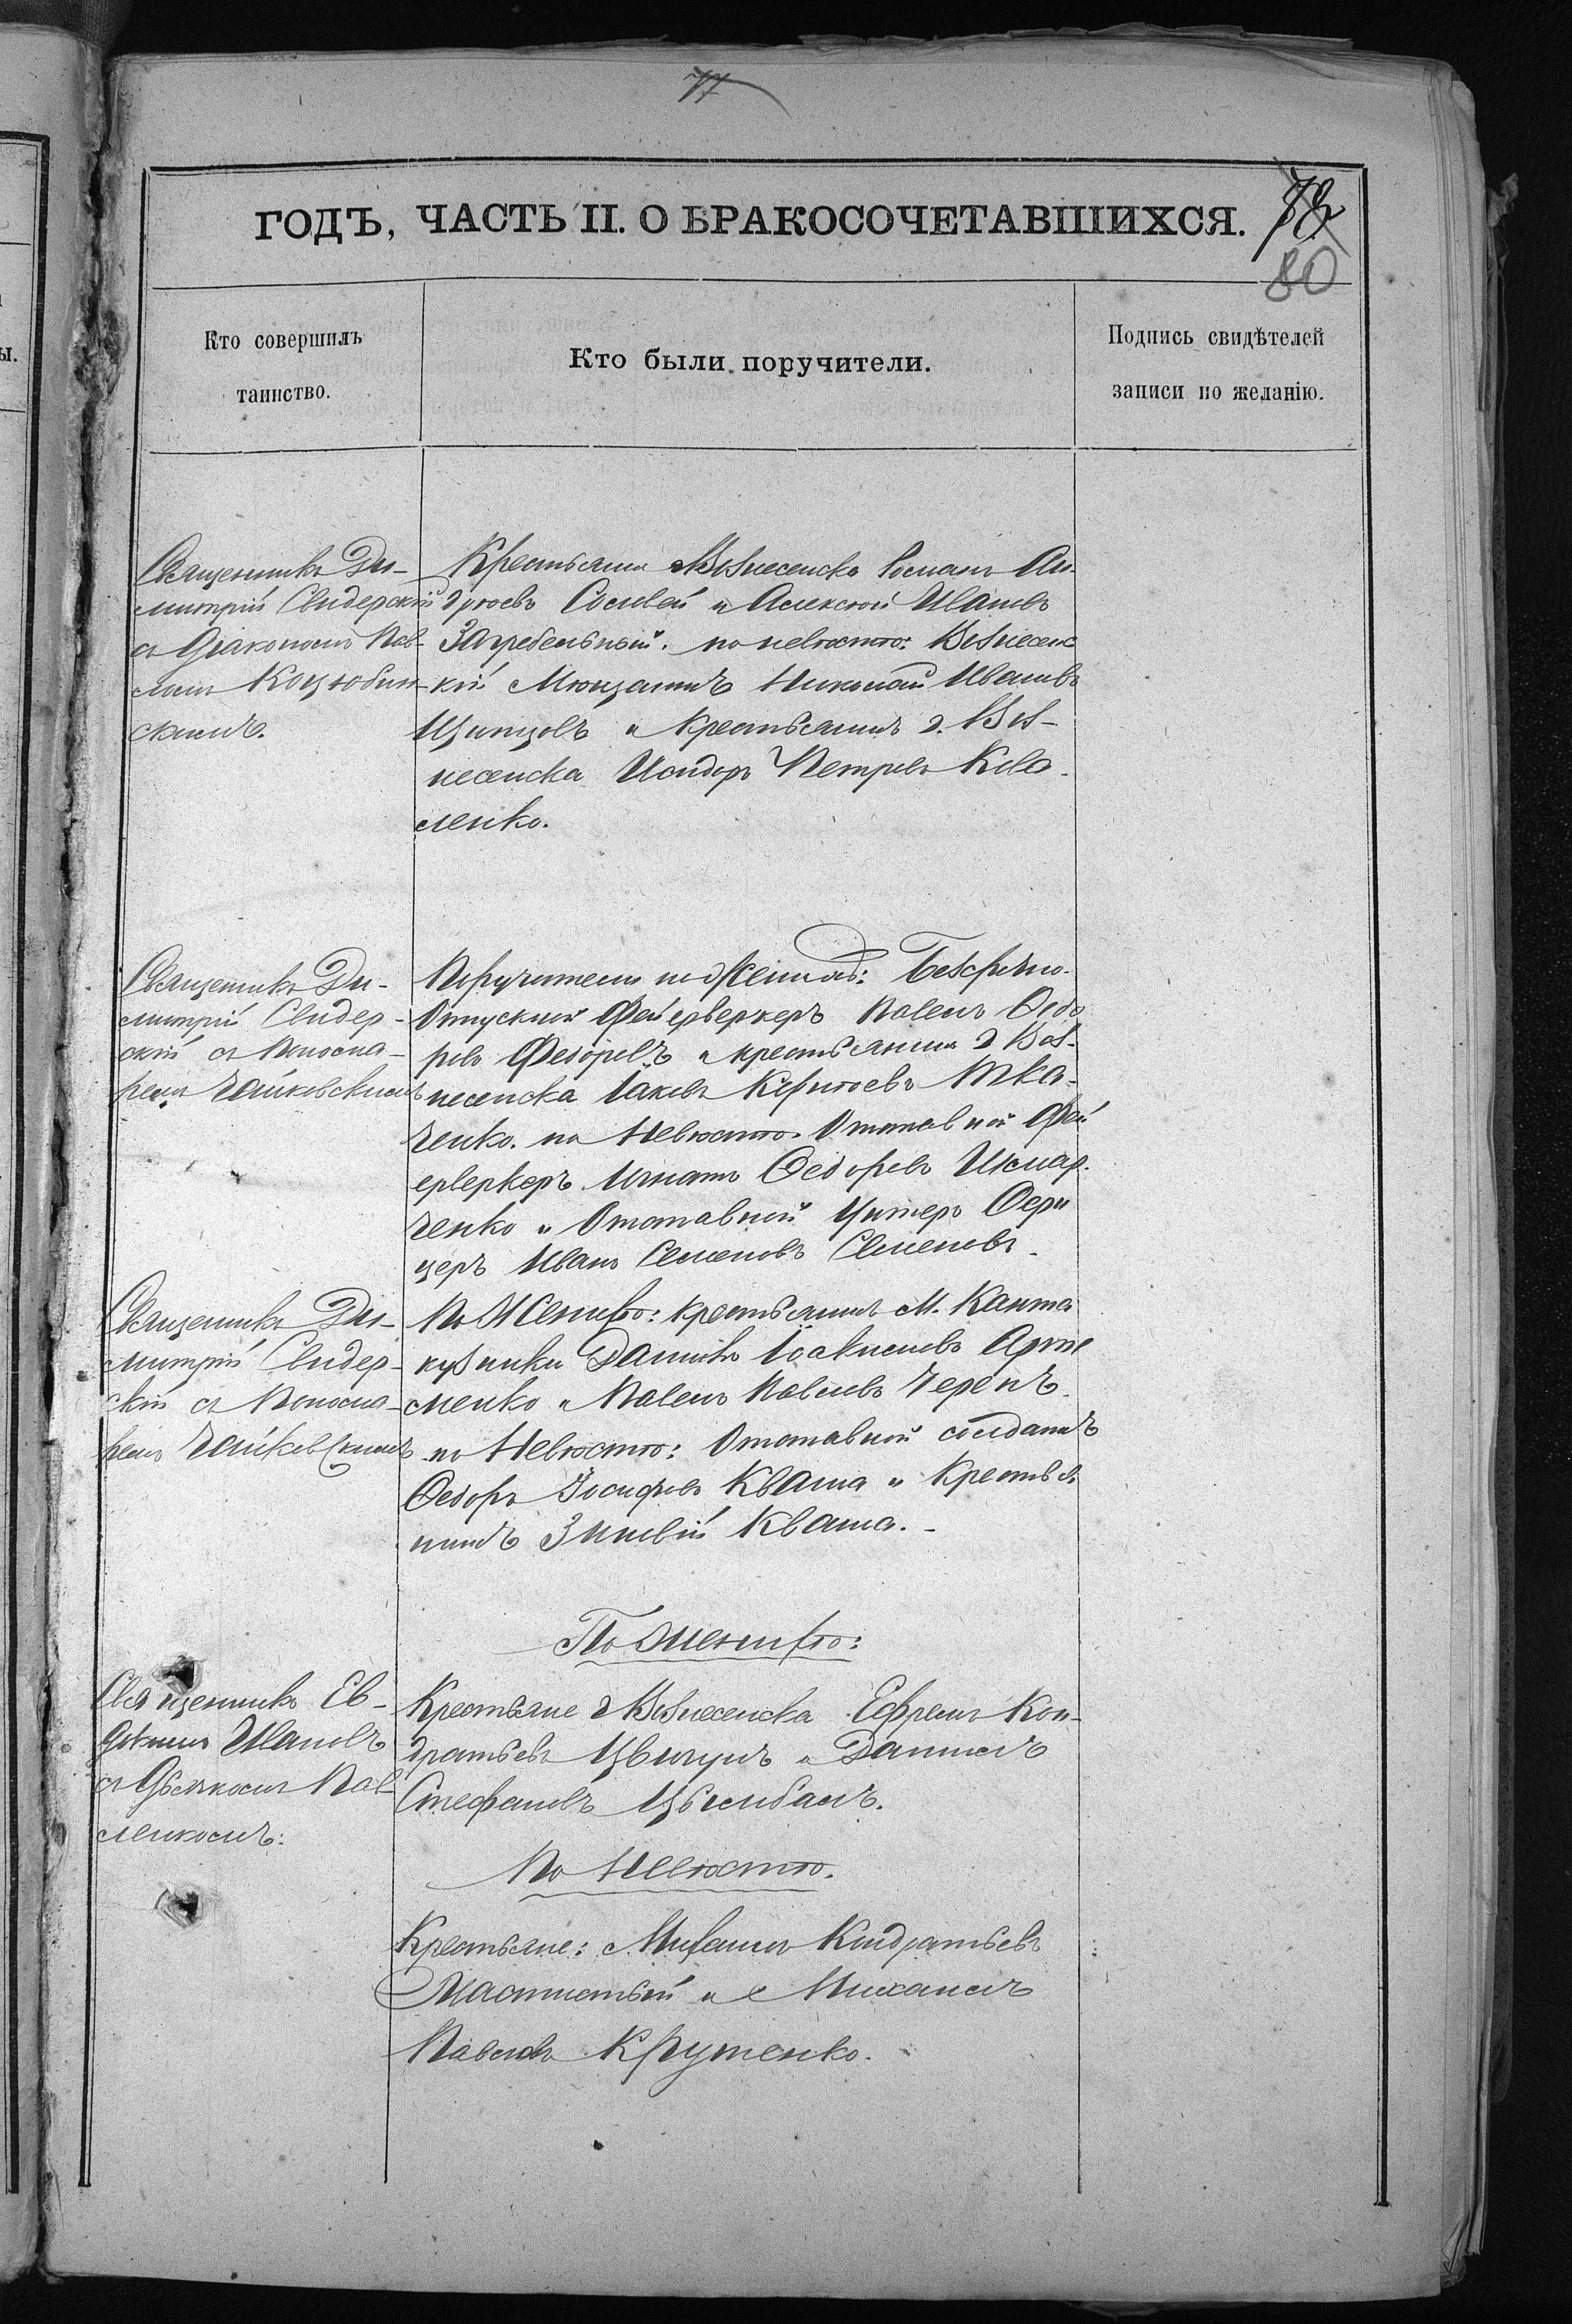 77
ГОДЪ, ЧАСТЬ II. О БРАКОСОЧЕТАВШИХСЯ.
78
80
Кто совершилъ
таинство.
Кто были поручители.
Подпись свидѣтелей
записи по желанію.
Священникъ Ди-
митрій Свидерскій
съ Діакономъ Пав-
ломъ Коцюбин-
скимъ.
Крестьяни Вознесенска Романъ Ан-
дреевъ Соловей и Алексѣй Ивановъ
Загребельный. по невѣстѣ: Вознесенс
кій Мѣщанинъ Николай Ивановъ
и Крестьянинъ г. Воз-
несенска Исидоръ Петровъ Кова-
ленко.
Священникъ Ди-
митрій Свидер-
скій съ Пономо-
ремъ Чайковскимъ
Поручители по Женихѣ: Безсрочно-
Отпускной Фейерверкеръ Павелъ Ѳедо
ровъ Федоровъ и крестьянинъ г Воз-
несенска Іаковъ Корнѣевъ Тка-
ченко. по Невѣстѣ. Отставной Фей
ерверкеръ Игнатъ Ѳедоровъ
ченко и Отставной Унтеръ Офи
церъ Иванъ Семеновъ Семеновъ.
Священникъ Ди-
митрій Свидер-
скій съ Пономо-
ремъ Чайковскимъ
По Женихѣ: крестьянинъ М.Канта
кузинки Даніилъ Іоакимовъ Артё
менко и Павелъ Павловъ Черепъ.
по Невѣстѣ: Отставной солдатъ
Ѳедоръ Іосифовъ Кваша и Крестья
нинъ Зиновій Кваша.-
По Женихѣ:
Священникъ Ев-
докимъ Ивановъ
съ Дьякомъ Пав-
ленкомъ:
Крестьяне г Вознесенска Ефремъ Кон-
дратьевъ Цвигунъ и Даніилъ
Стефановъ Цымбалъ.
По Невѣстѣ.
Крестьяне: Михаилъ Кондратьевъ
и Михаилъ
Павловъ Крутенко.